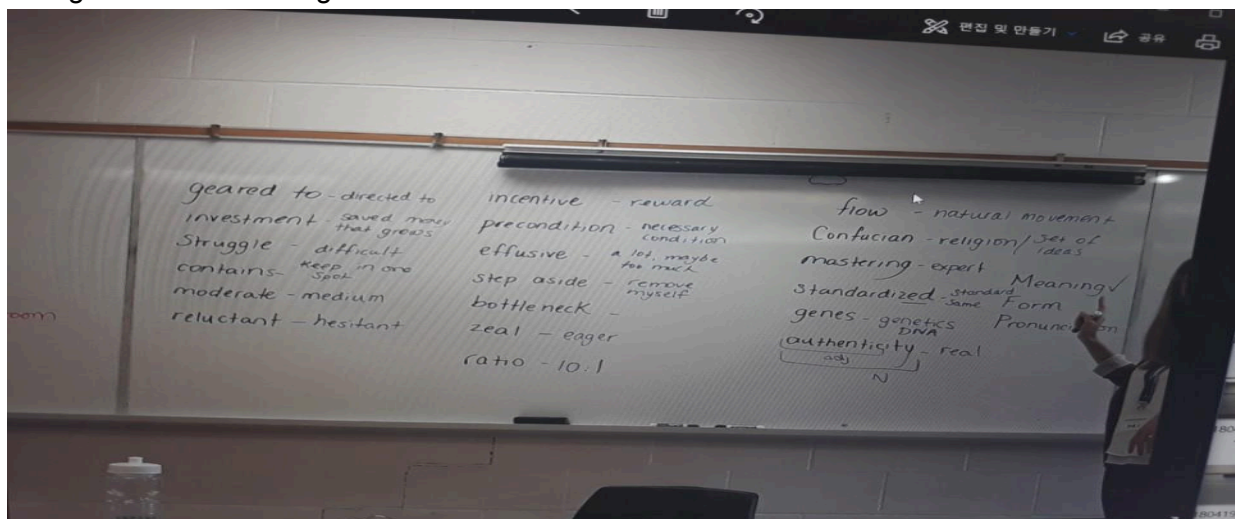 편집 및 만들기
공유
geared to - directed to
investment - saved money that grows
struggle - difficult
contains - keep in one spot
moderate - medium
reluctant - hesitant
incentive - reward
precondition - necessary condition
effusive - a lot, maybe too much
step aside - remove myself
bottleneck -
zeal - eager
ratio - 10:1
flow - natural movement
Confucian - religion/set of ideas
mastering - expert
standardized - standard same
genes - genetics DNA
authenticity - real
adj
N
Meaning✓
Form
oom
180419